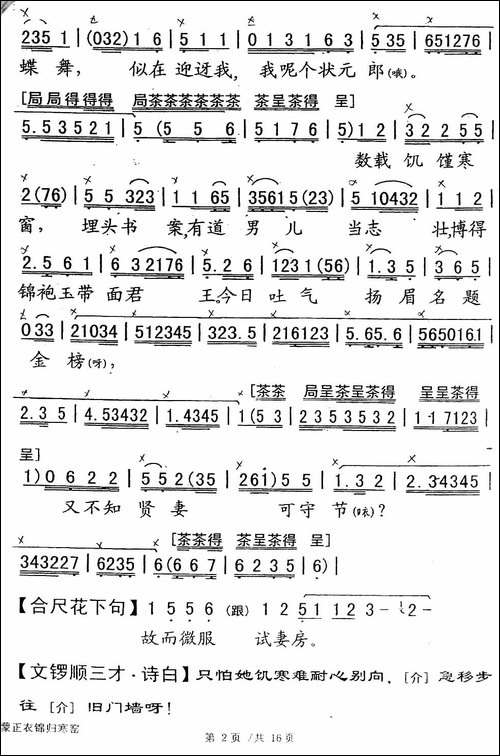 235 1 | (032) 1 6 | 5 1 1 | 0 1 3 1 6 3 | 5 35 | 651276 |
蝶 舞， 似在 迎迓我， 我呢个状元 郎(哦)。
[局局得得得 局茶茶茶茶茶茶 茶呈茶得 呈]
5.53521 | 5 (5 5 6 | 5 1 7 6 | 5) 1 2 | 3 2 2 55 |
数载 饥 馑寒
2 (76) | 5 5 323 | 1 1 65 | 35615(23) | 5 10432 | 1 1 2 |
窗， 埋头书 案,有道 男 儿 当志 壮,博得
2. 5 6 1 | 6 3 2176 | 5. 2 6 | 1231 (56) | 1. 3 5 | 3 6 5 |
锦袍玉带 面君 王。今日 吐气 扬 眉 名 题
0 33 | 21034 | 512345 | 323.5 | 216123 | 5.65.6 | 565016.1 |
金 榜(呀)，
[茶茶 局呈茶呈茶得 呈呈茶得
2. 3 5 | 4.53432 | 1.4345 | 1 (5 3 | 2353532 | 1·17123 |
呈]
1) 0 6 2 2 | 5 5 2 (35 | 261) 5 5 | 1. 3 2 | 2.34345 |
又不知 贤 妻 可守 节(咴)？
[茶茶得 茶呈茶得 呈]
343227 | 6235 | 6 (6 6 7 | 6 2 3 5 | 6) |
【合尺花下句】1 5 5 6 (跟) 1 2 51 12 3 – 1 2 –
故而微服 试妻房。
【文锣顺三才·诗白】只怕她饥寒难耐心别向，[介] 急移步
往 [介] 旧门墙呀！
蒙正衣锦归寒窑
第 2 页 /共 16页